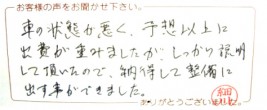 お客様の声をお聞かせ下さい。
車の状態が悪く、予想以上に
出費が重みましたが、しっかり説明
して頂いたので、納得して整備に
出す事ができました。
ありがとうござい